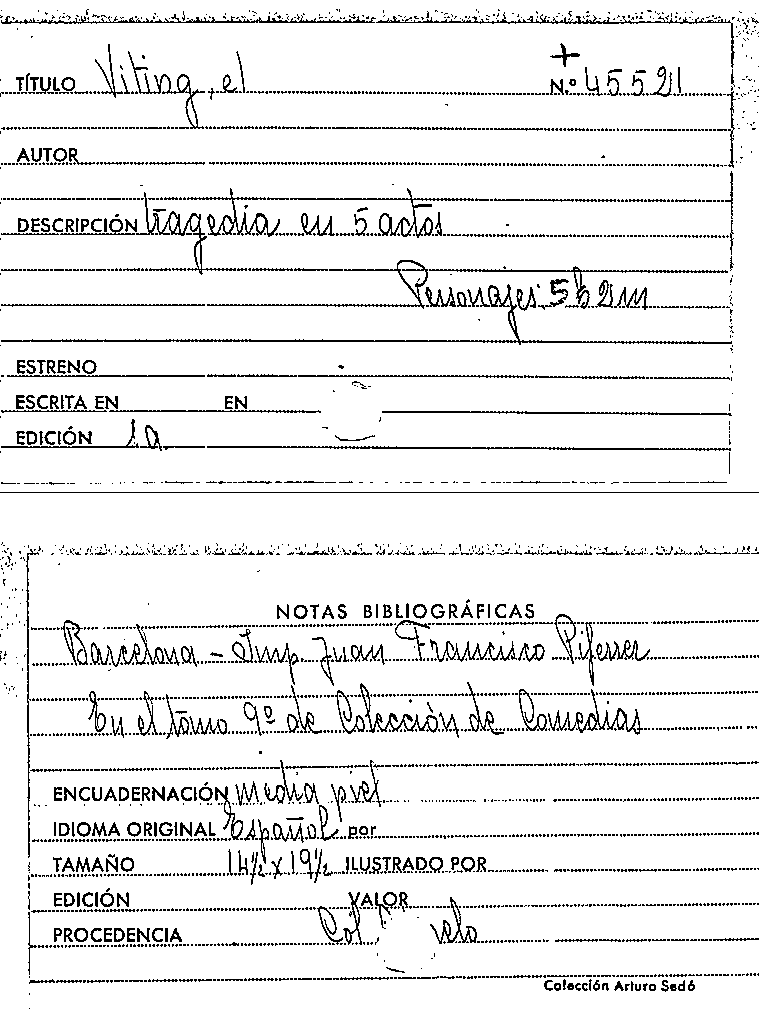 TÍTULO Viting, el
+
N.º 45521
AUTOR
DESCRIPCIÓN tragedia en 5 actos
Personajes: 5h 2m
ESTRENO
ESCRITA EN EN
EDICIÓN 1a
NOTAS BIBLIOGRÁFICAS
Barcelona - Imp. Juan Francisco Piferrer
En el tomo 9º de Colección de Comedias
ENCUADERNACIÓN media piel
IDIOMA ORIGINAL Español por
TAMAÑO 14½ x 19½ ILUSTRADO POR
EDICIÓN VALOR
PROCEDENCIA Col
Colección Arturo Sedó